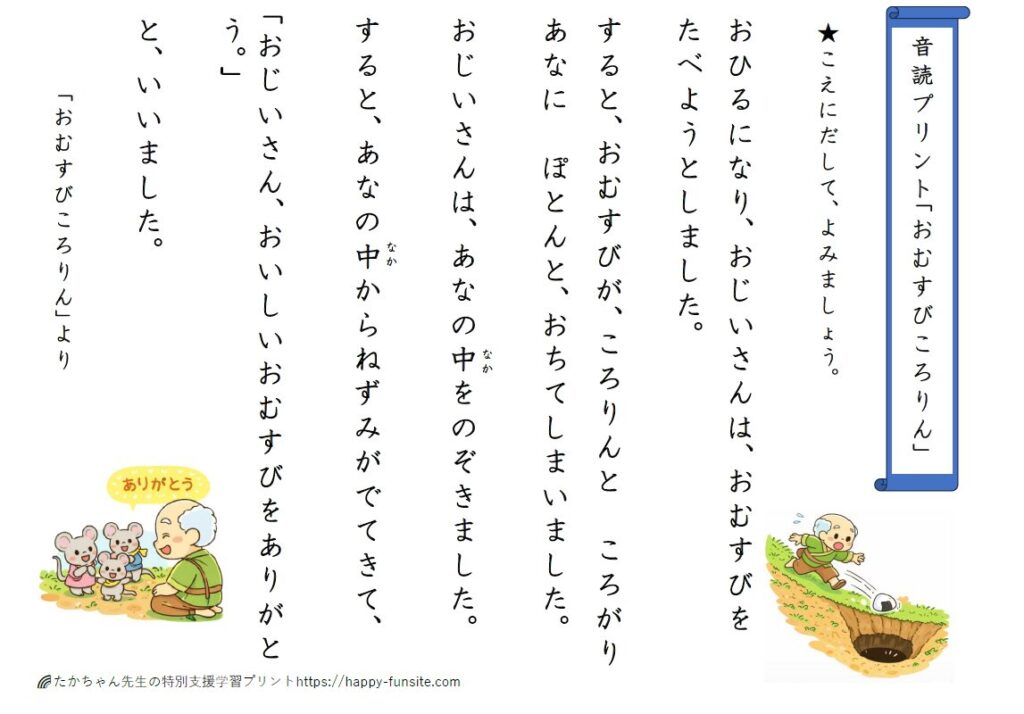 音読プリント「おむすびころりん」
★こえにだして、よみましょう。
おひるになり、おじいさんは、おむすびを
たべようとしました。
すると、おむすびが、ころりんと　ころがり
あなに　ぽとんと、おちてしまいました。
おじいさんは、あなの中をのぞきました。
なか
すると、あなの中からねずみがでてきて、
なか
「おじいさん、おいしいおむすびをありがと
う。」
と、いいました。
「おむすびころりん」より
ありがとう
たかちゃん先生の特別支援学習プリントhttps://happy-funsite.com